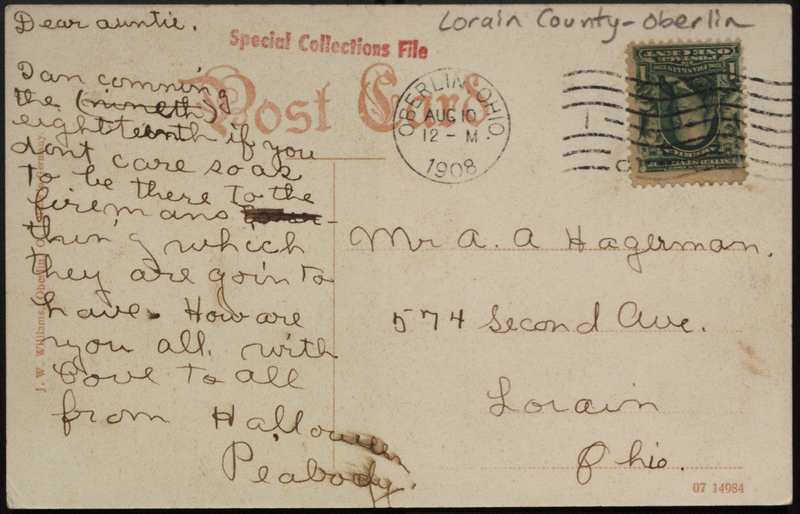 Lorain County-Oberlin
Special Collections File
Post Card
OBERLIN, OHIO.
AUG 10
12 - M
1908
Dear auntie.
I an comming
the (nineth)
eighteenth if you
dont care so as
to be there to the
firemans
thing which
they are goin to
have. How are
you all. with
Love to all
from Halloweene
Peabody.
Mr A. A Hagerman.
574 Second Ave.
Lorain
Ohio.
J. W. Williams, Oberlin, O.
Germany
07 14984